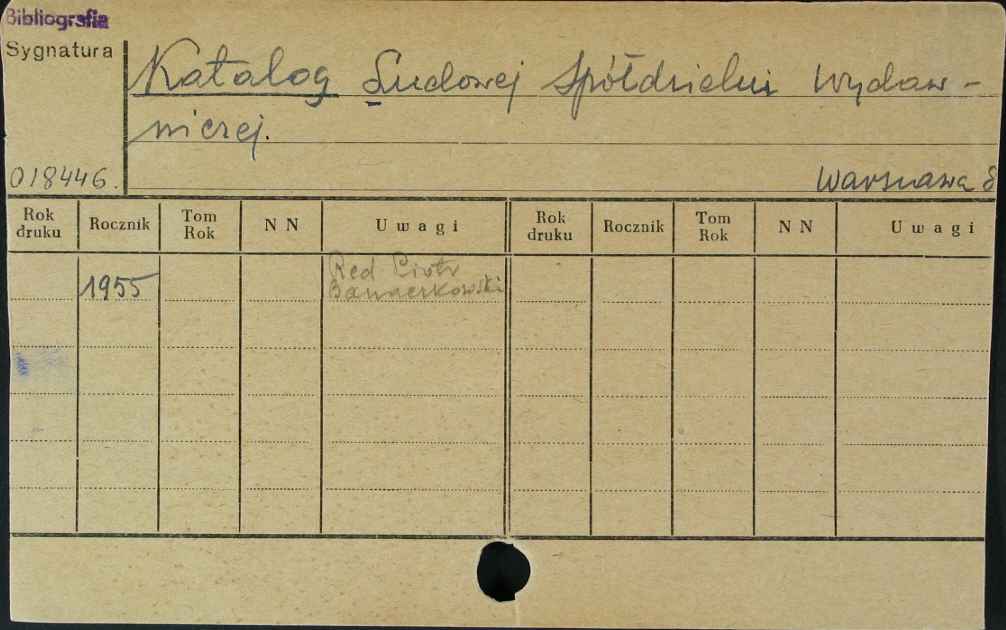 Bibliografia
Sygnatura
Katalog Ludowej Spółdzielni Wydaw-
niczej.
018446.
Warszawa 8
Rok druku Rocznik Tom Rok NN Uwagi Rok druku Rocznik Tom Rok NN Uwagi
1955 Red Piotr
Banaczkowski